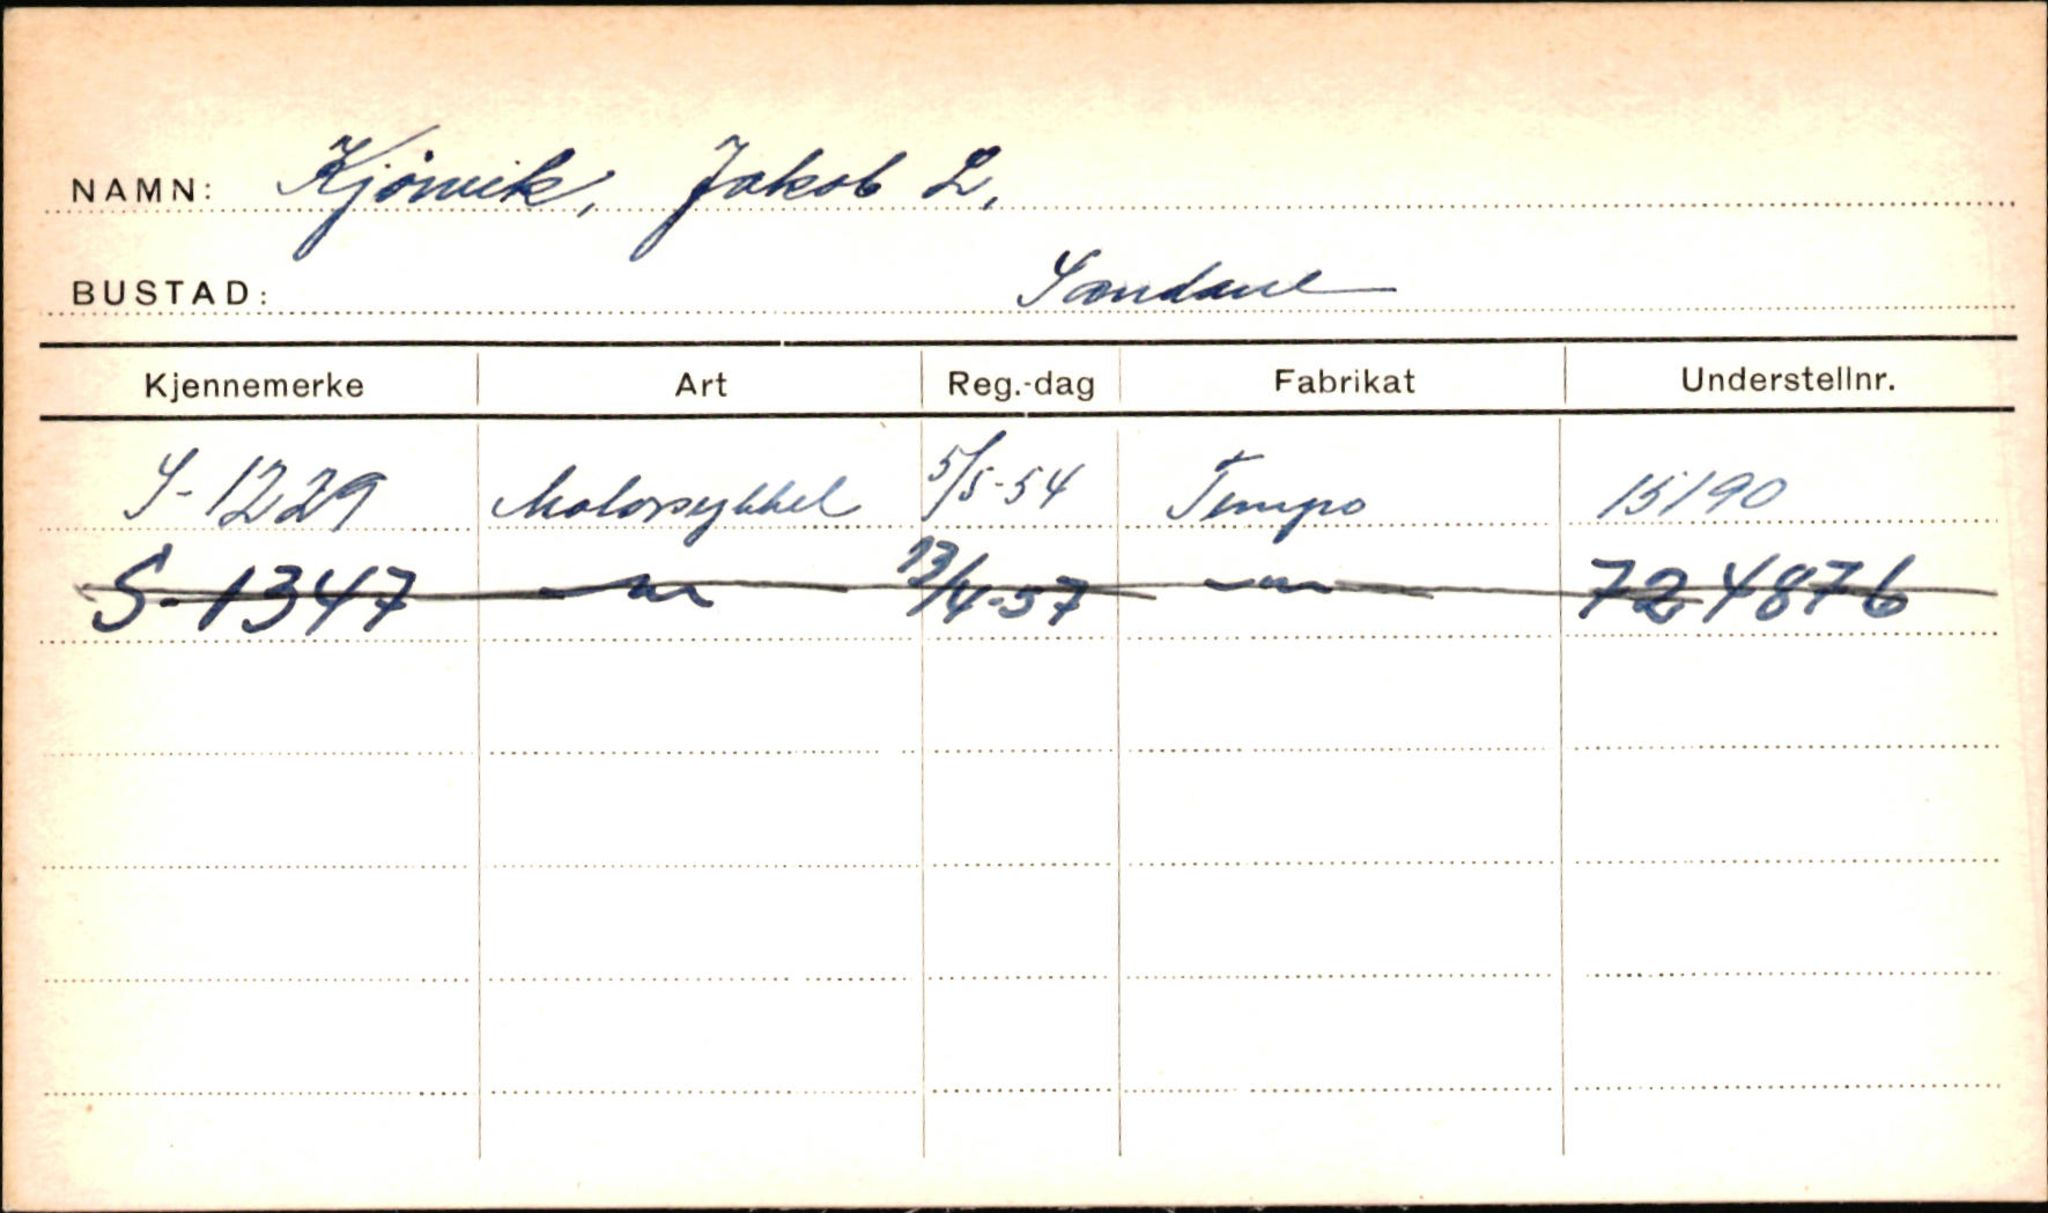 NAMN: Kjönvik, Jakob L.
BUSTAD: Sandane
Kjennemerke Art Reg.-dag Fabrikat Understellnr.
S-1229 Motorsykkel 5/5-54 Tempo 15190
S-1347 —"— 13/4-57 —"— 724876